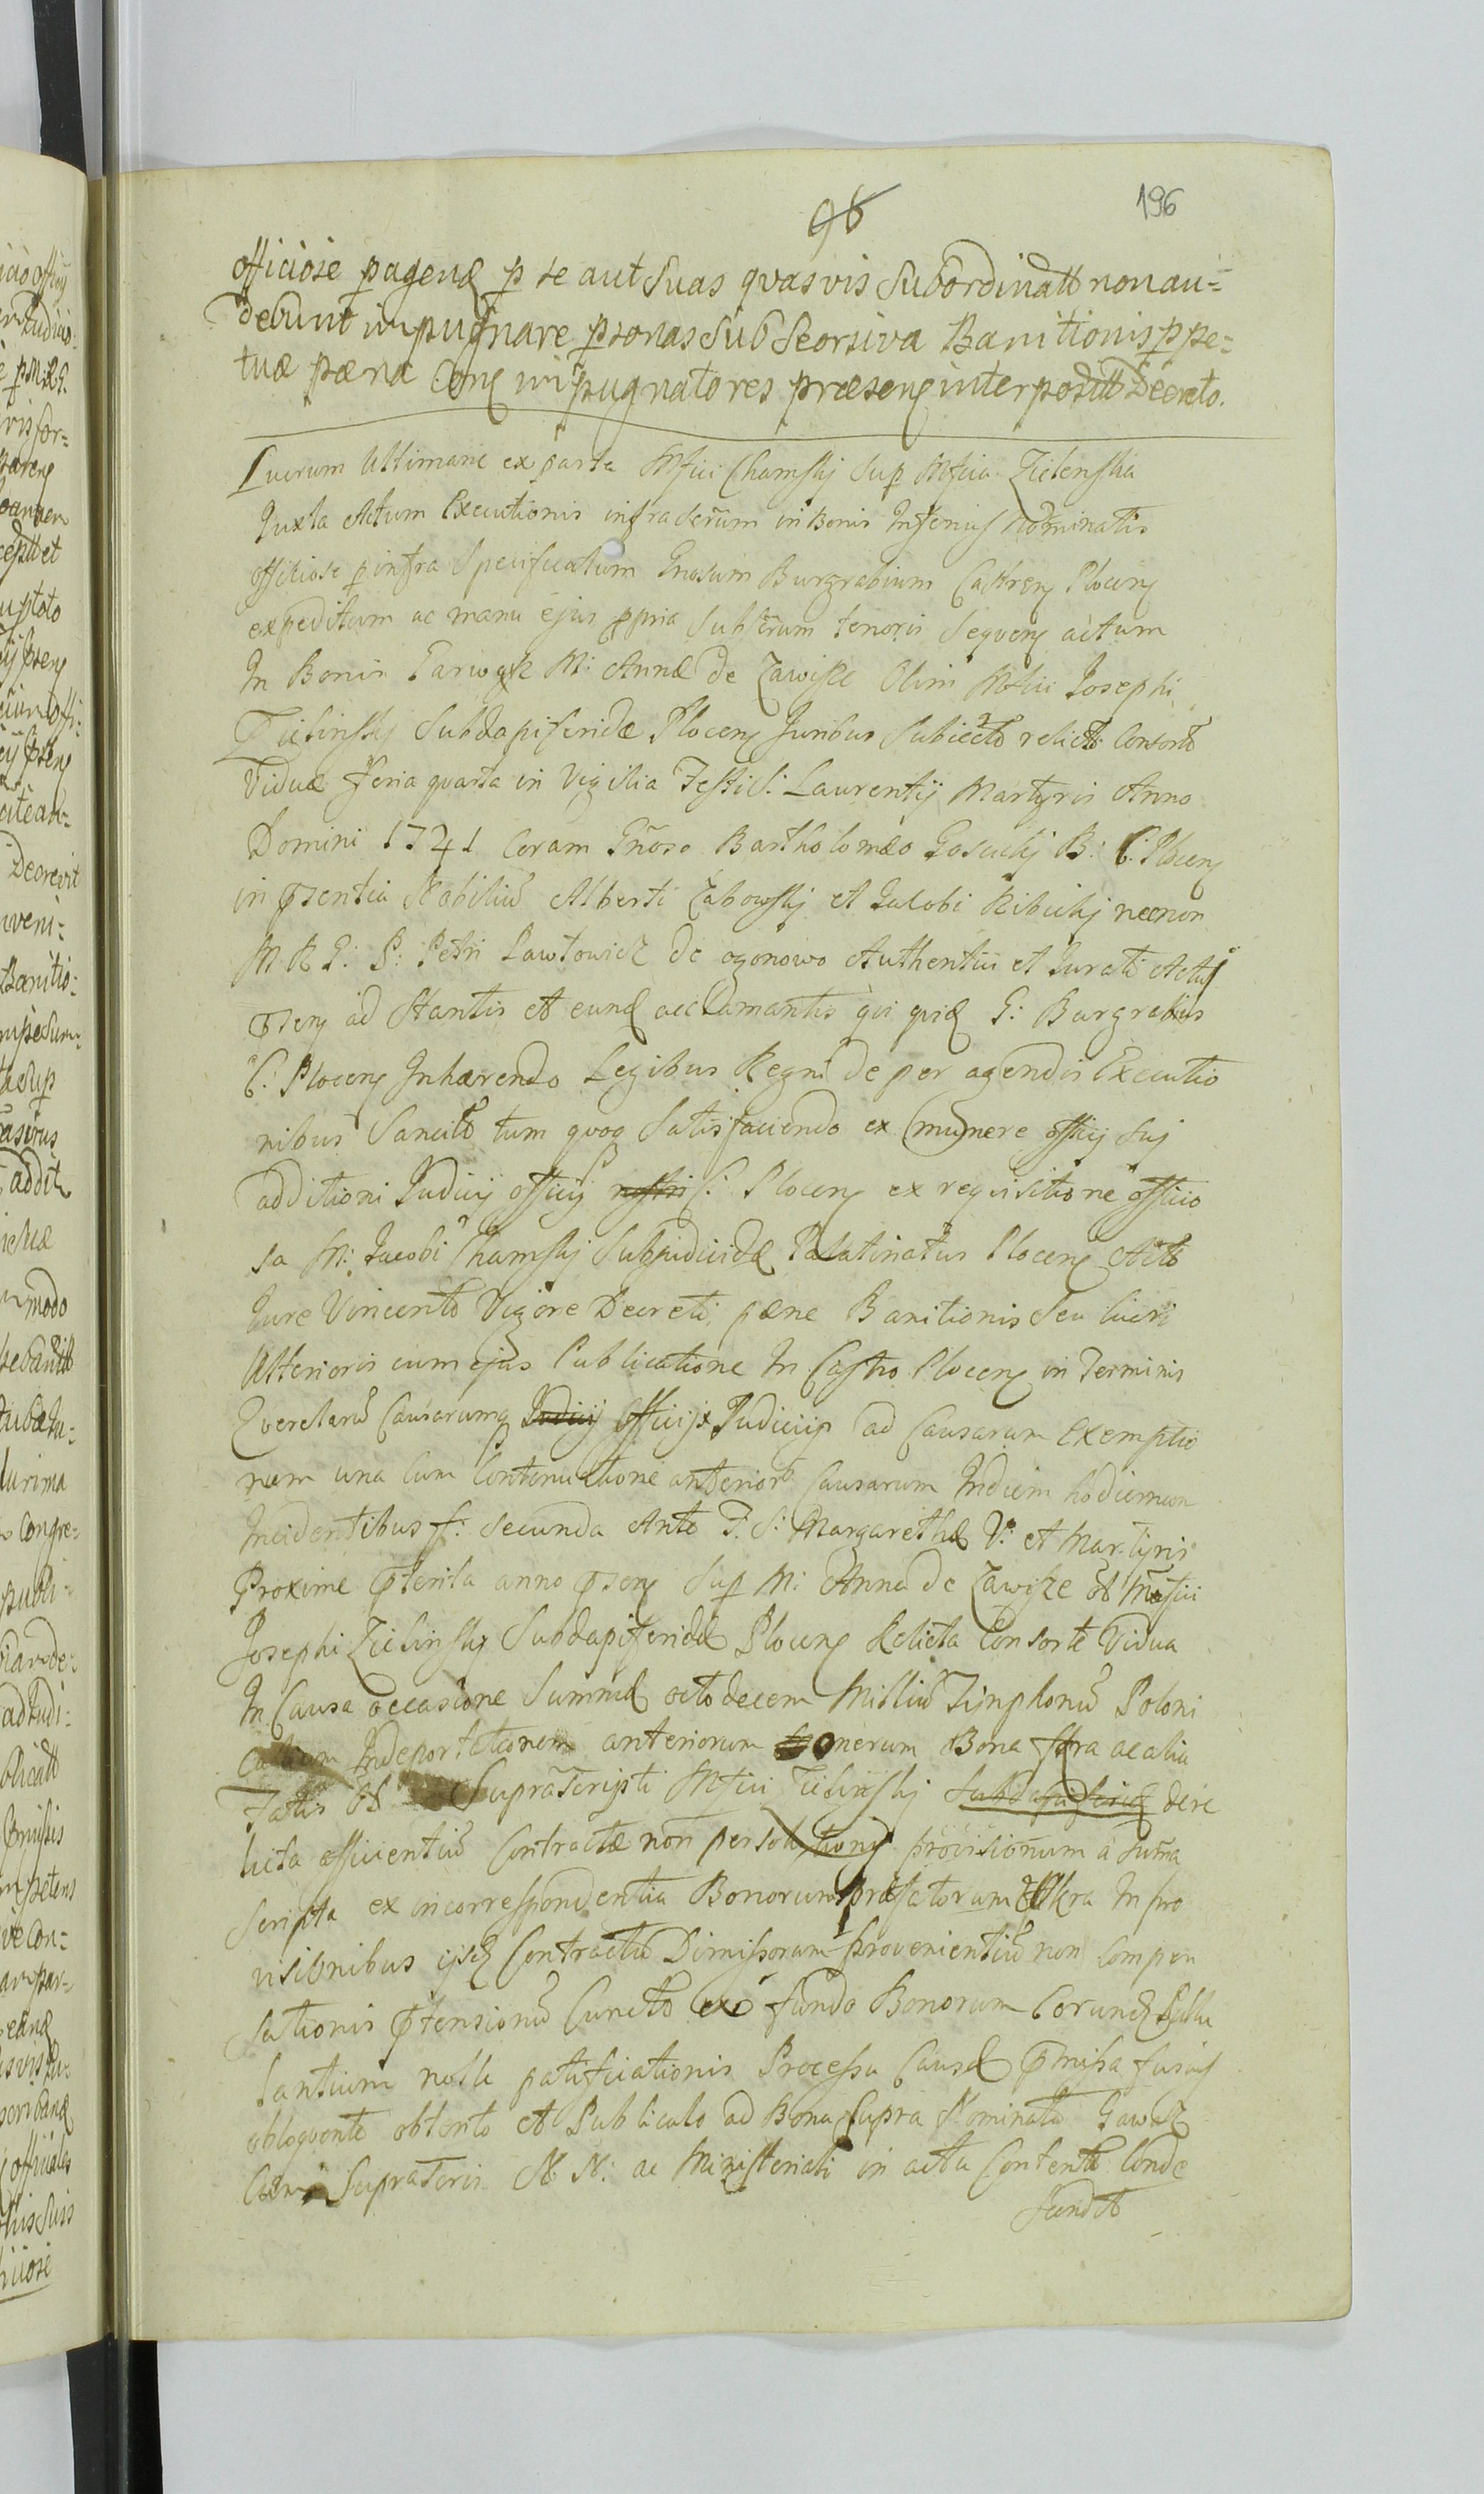 96
196
officiose pagenɖ p se aut Suas qvasvis Subordinatt non au=
debunt impugnare psonas Sub Seorsiva Banitionis p pe=
tuæ pæna Conɟ impugnatores præsenɟ interposittt Decreto.
Lucrum Ultimarie ex parte Mfici Chamskj Sup Mfica Zielenska
Juxta Actum Executionis infrascrum in Bonis Inferius Nominatis
officiose p infra Specificatum Gnosum Burgrabium Castrenɟ Plocenɟ
expeditum ac manu ejus ppria Subscrum tenoris Seqvenɟ actum
In Bonis M: Annæ de Zawisze Olim Mfici Josephi
Zielinskj Subdapiferidæ Plocenɟ Juribus Subiecto relicto Consorte
Viduæ Feria qvarta in Vigilia Festi S: Laurentij Martyris Anno
Domini 1741 Coram Gnoso Bartholomæo B: C: Plocenɟ
in Psentia Nobiliu Alberti Zabowskj et Jacobi Ribickj necnon
M R G: P: Petri Pawlowicz de ogonowo Authentici et Jurati Actuj
Psenɟ ad Stantis et eunɖ acclamantis qui qvid G: Burgrabius
C: Plocenɟ Inhærendo Legibus Regni de per agendis Executio
nibus Sancito tum qvoq Satisfaciendo ex munere officij Suj
additioni Judicij officij nostri C: Plocenɟ ex reqvisitione officio
sa M: Jacobi Chamskj Subjudicidæ Palatinatus Plocenɟ Acto
Jure Vincento Vigore Decreti pæne Banitionis Seu lucri
Ulterioris cum ejus Publicatione In Castro Plocenɟ in Terminis
Qverelaru Causarumq Judicij Officij Judicijq ad Causarum Exemptio
nem una Cum Continuatione anterior Causarum Indiem hodiernum
Incidentibus f: Secunda Ante F: S: Margarethæ V: et Martyris
Proxime Pterita anno Psenɟ Sup M: Anna de Zawisze Mfici
Josephi Zielinskj Subdapiferidæ Plocenɟ Relicta Consorte Vidua
In Causa occasione Summæ octodecem Milliu Tinphonu Poloni
Indeportationem anteriorum onerum Bona ac alia
Suprascripti Mfici Zielinskj Subdapiferidæ dere
licta efficientiu Contractæ non persolutionis provisionum a suma
Scripta ex incorrespondentia Bonorum præfatorum In pro
visionibus ejsɖ Contractu Dimissorum provenientiu non Compen
sationis Ptensionu Cuncto ex fundo Bonorum Corunɖ
lantium nolle patificationis Processu Causæ Pmissa fusius
obloqvente obtento et Publicato ad Bona Supra Nominata
Cum Suprascris N N: ac Ministeriali in acta Contento Conde
Scendit